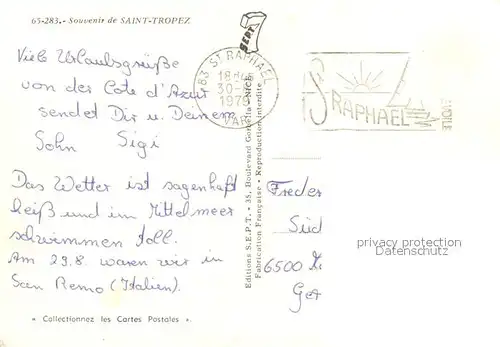 65-283.- Souvenir de SAINT-TROPEZ
Viele Urlaubsgrüße
von der Cote d'Azur
sendet Dir u. Deinem
Sohn Sigi
Das Wetter ist sagenhaft
heiß und im Mittelmeer
schwimmen toll.
Am 29.8. waren wir in
San Remo (Italien).
« Collectionnez les Cartes Postales ».
SEPT
83 ST RAPHAEL
18H
30-
VAR
Editions S.E.P.T. - 35, Boulevard NICE
Fabrication Française - Reproduction interdite
ST RAPHAEL
Freder
Süd
6500
Ger
privacy protection
Datenschutz